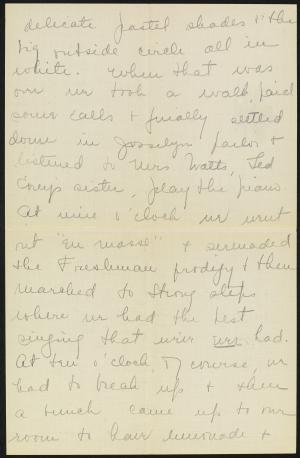 delicate pastel shades & the
big outside circle all in
white. When that was
over we took a walk, paid
some calls & finally settled
down in Josselyn parlor &
listened to Mrs. Watts, Ted
Corey's sister, play the piano.
At nine o'clock we went
out "en masse" & serenaded
the Freshman prodigy & then
marched to Strong steps
where we had the best
singing that we've had.
At ten o'clock, of course, we
had to break up & then
a bunch came up to our
room to have lemonade &